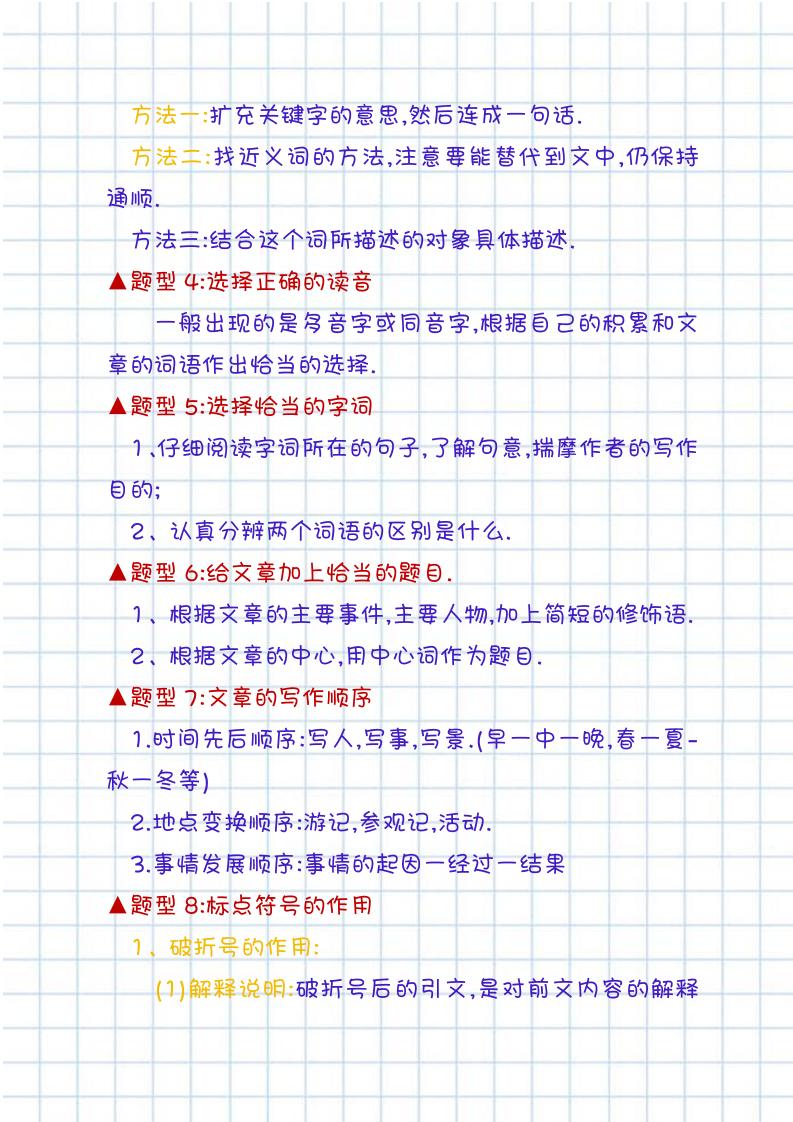 方法一:扩充关键字的意思,然后连成一句话.
方法二:找近义词的方法,注意要能替代到文中,仍保持
通顺.
方法三:结合这个词所描述的对象具体描述.
▲题型 4:选择正确的读音
一般出现的是多音字或同音字,根据自己的积累和文
章的词语作出恰当的选择.
▲题型 5:选择恰当的字词
1、仔细阅读字词所在的句子,了解句意,揣摩作者的写作
目的;
2、认真分辨两个词语的区别是什么.
▲题型 6:给文章加上恰当的题目.
1、根据文章的主要事件,主要人物,加上简短的修饰语.
2、根据文章的中心,用中心词作为题目.
▲题型 7:文章的写作顺序
1.时间先后顺序:写人,写事,写景.(早一中一晚,春一夏-
秋一冬等)
2.地点变换顺序:游记,参观记,活动.
3.事情发展顺序:事情的起因一经过一结果
▲题型 8:标点符号的作用
1、破折号的作用:
(1)解释说明:破折号后的引文,是对前文内容的解释